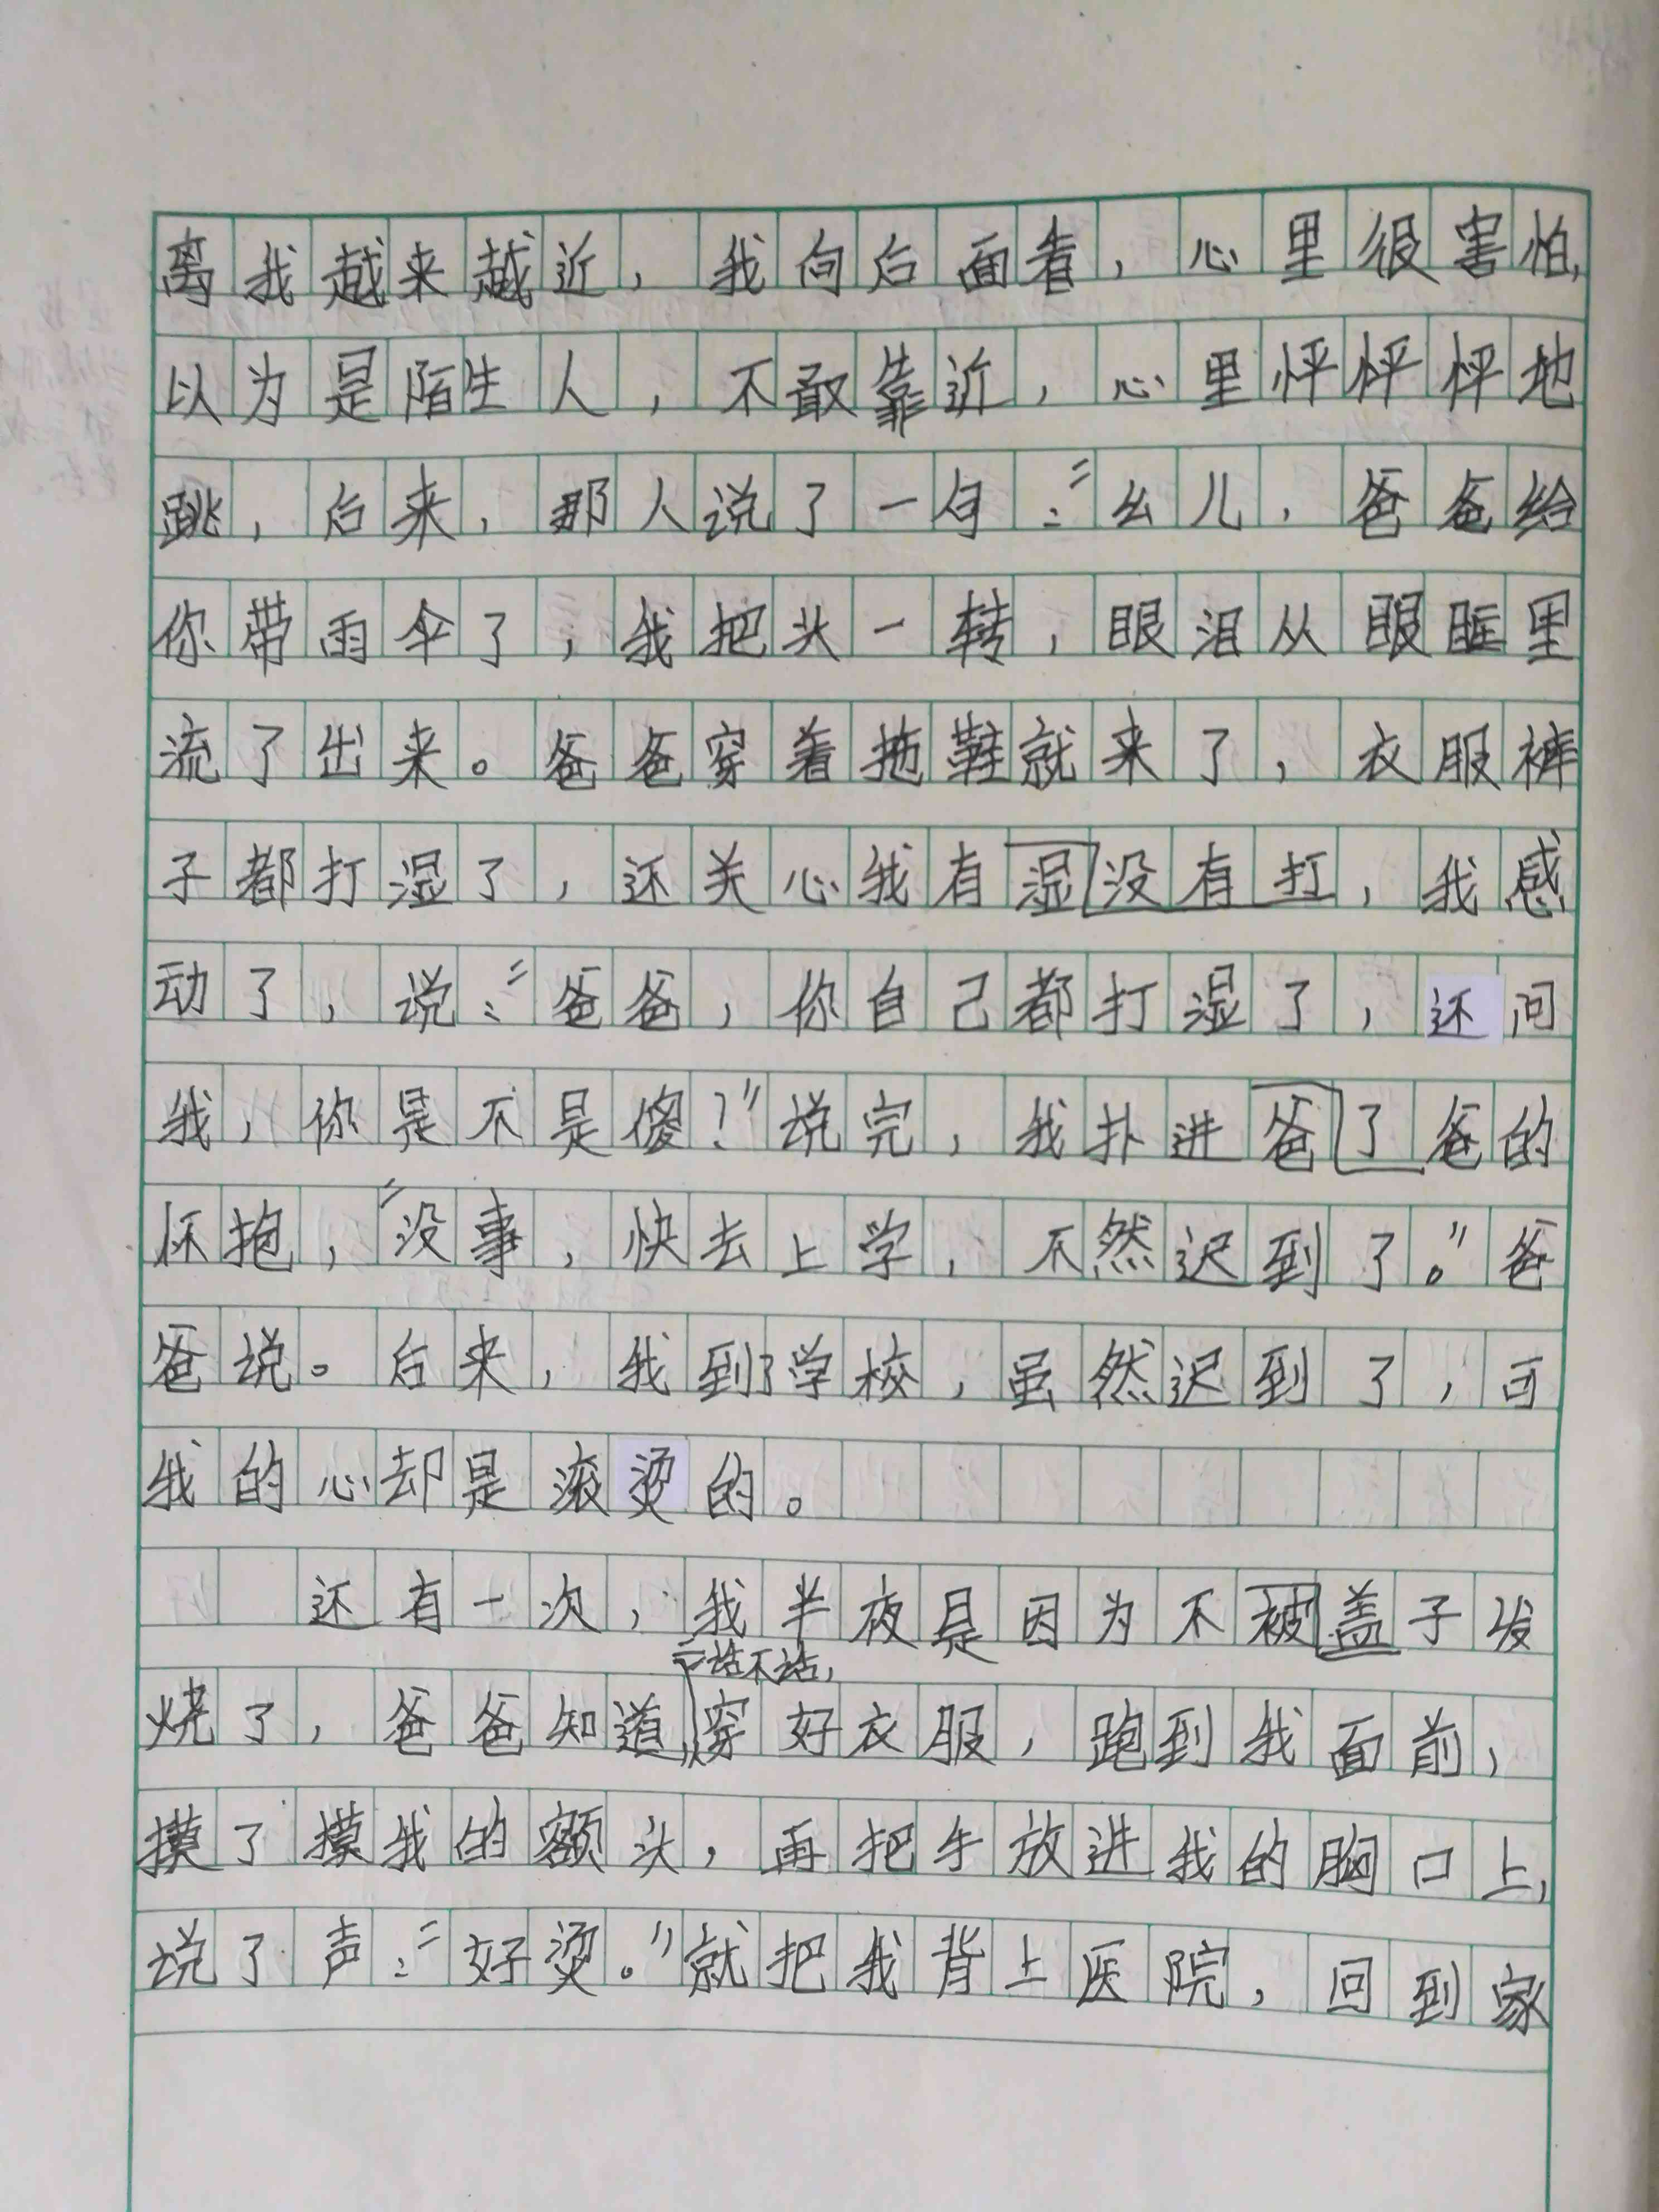 离我越来越近，我向后面看，心里很害怕，
以为是陌生人，不敢靠近，心里怦怦怦地
跳，后来，那人说了一句：“幺儿，爸爸给
你带雨伞了，我把头一转，眼泪从眼眶里
流了出来。爸爸穿着拖鞋就来了，衣服裤
子都打湿了，还关心我有湿没有打，我感
动了，说：“爸爸，你自己都打湿了，还问
我，你是不是傻？”说完，我扑进爸了爸的
怀抱，“没事，快去上学，不然迟到了。”爸
爸说。后来，我到了学校，虽然迟到了，可
我的心却是滚烫的。
还有一次，我半夜是因为不被盖子发
二话不说，
烧了，爸爸知道，穿好衣服，跑到我面前，
摸了摸我的额头，再把手放进我的胸口上，
说了声：“好烫。”就把我背上医院，回到家